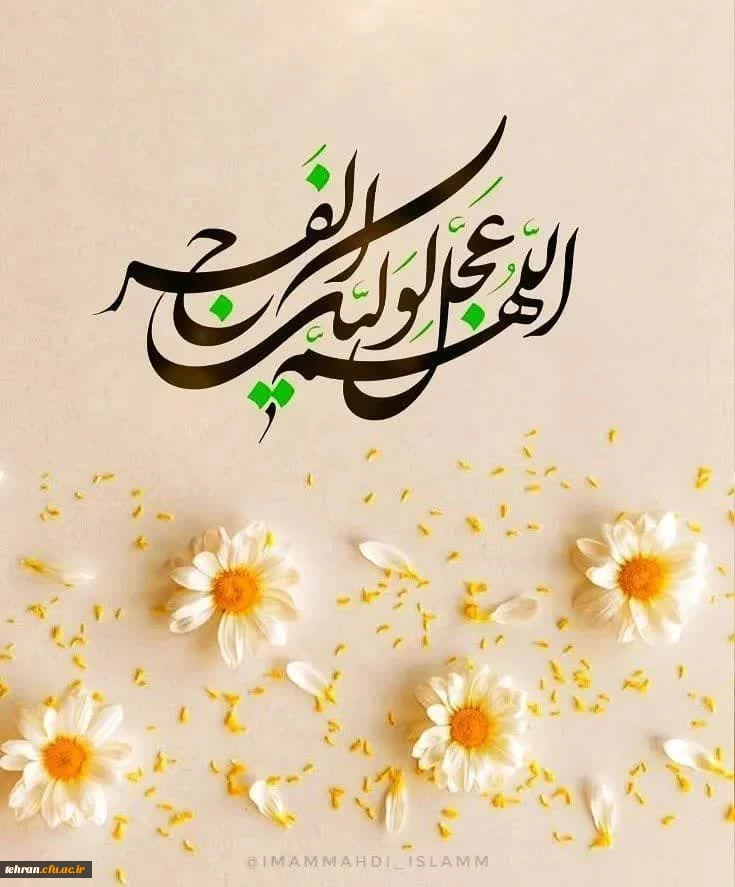 اللّهُمَّ عَجِّل لِوَلیِّکَ الفَرَج
@IMAMMAHDI_ISLAMM
tehran.cfu.ac.ir